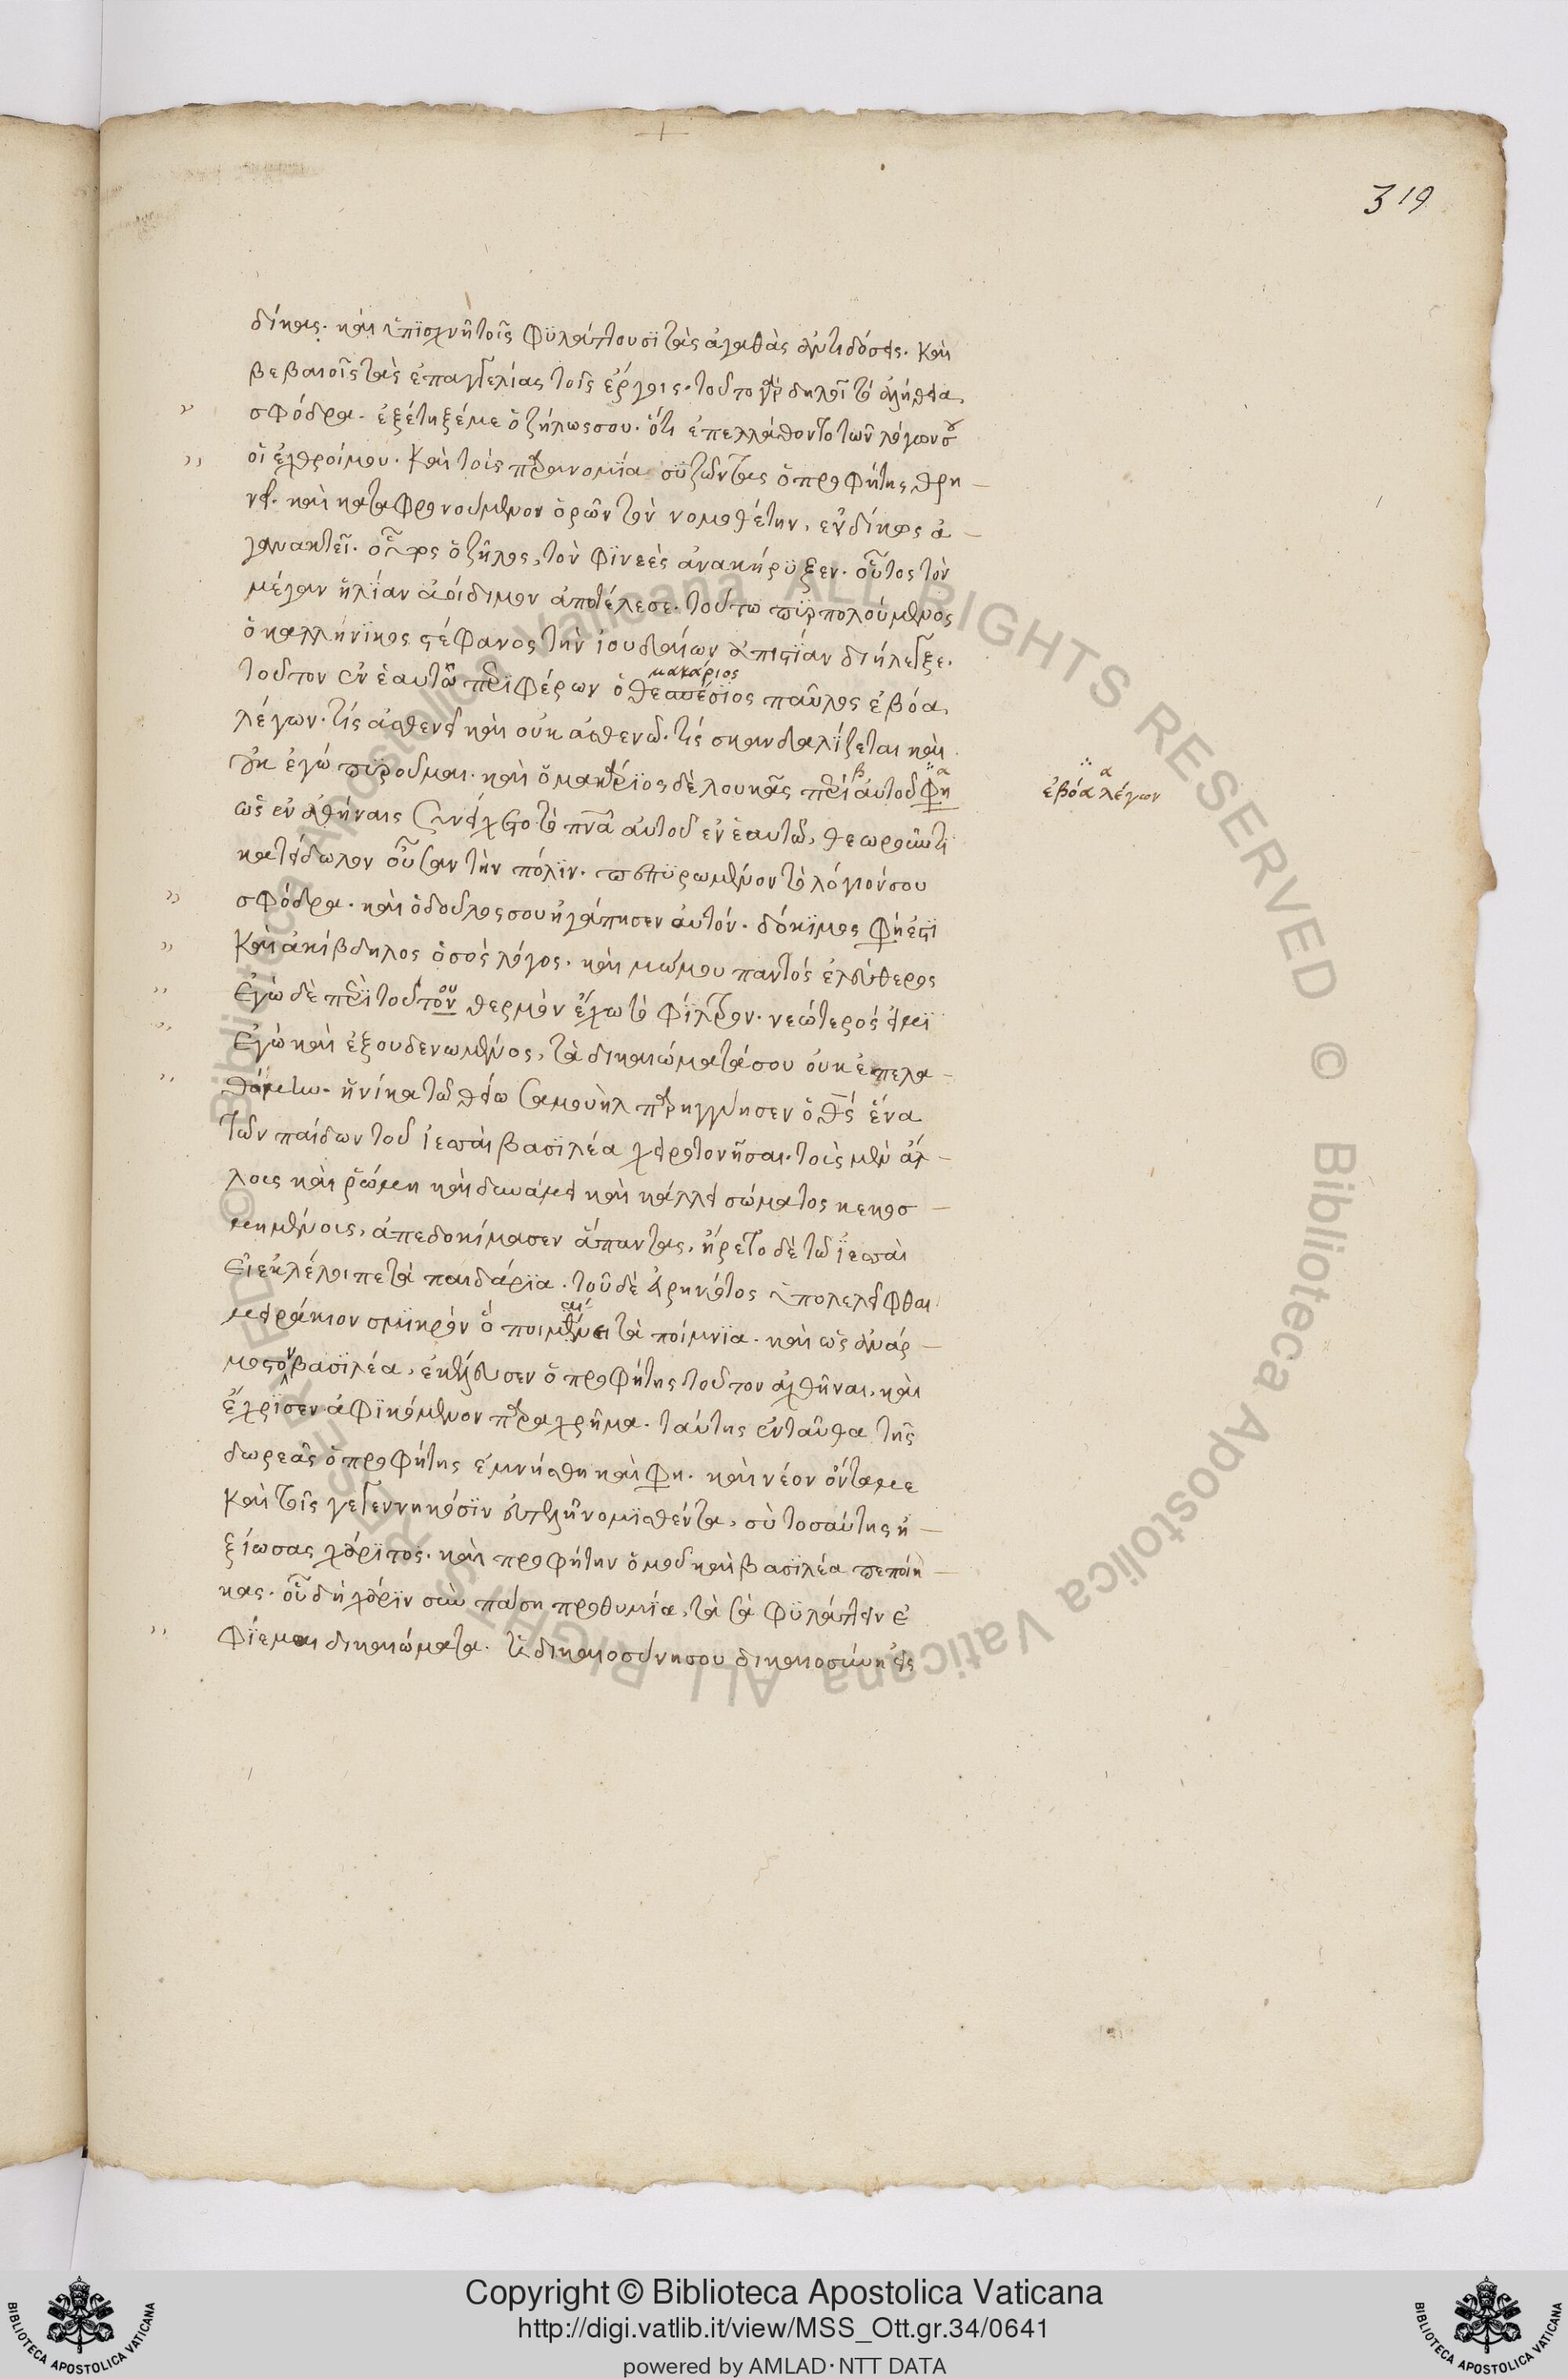 319
δίκας. καὶ ὑπισχνῆ τοῖς φϋλάττουσϊ τὰς ἀγαθὰς ἀντιδόσεις. Καὶ
βεβαιοῖς τὰς ἐπαγγελίας τοῖς ἔργοις. τοῦτο γὰρ δηλοῖ τὸ ἀλήθεια,
σφόδρα. ἐξέτηξέ με ὁ ζῆλως σου. ὅτι ἐπελλάθοντο τῶν λόγων σου
οἱ ἐχθροί μου. Καὶ τοὶς παρανομία συζῶντας ὁ προφήτης θρη
νεῖ. καὶ καταφρονούμενον ὁρῶν τὸν νομοθέτην, ἐνδίκως ἀ
γανακτεῖ. οὗτος ὁ ζῆλος, τὸν φϊνεὲς ἀνακήρϋξεν. οὗτος τὸν
μέγαν ἠλίαν ἀοίδιμον ἀπετέλεσε. τούτω πϋρπολούμενος
ὁ καλλήνϊκος στέφανος τὴν ἰουδαίων ἀπιστίαν διήλεγξε.
μακάριος
τοῦτον ἐν ἑαυτῶ περιφέρων ὁ θεσπέσϊος παῦλος ἐβόα,
λέγων. τίς ἀσθενεῖ καὶ οὐκ ἀσθενῶ. τίς σκανδαλίζεται καὶ
οὐκ ἐγώ πϋροῦμαι. καὶ ὁ μακάρϊος δὲ λουκᾶς περὶ αὐτοῦ φη
ἐβόα λέγων
ὡς ἐν ἀθήναις συνείχετο τὸ πνᾶ αὐτοῦ ἐν ἑαυτῶ, θεωροῦντϊ
κατείδωλον οὖσαν τὴν πόλϊν. πεπϋρωμένον τὸ λόγιόν σου
σφόδρα. καὶ ὁ δοῦλος σου ἠγάπησεν αὐτόν. δόκϊμος φη ἐστϊ
Καὶ ἀκίβδηλος ὁ σὸς λόγος. καὶ μώμου παντὸς ἐλεύθερος
ἐγὼ δὲ περὶ τοῦτον θερμὸν ἔχω τὸ φίλτρον. νεώτερός εἰμϊ
ἐγὼ καὶ ἐξουδενωμένος, τὰ δικαιώματά σου οὐκ ἐπελα
θόμην. ἡνίκα τῶ θείω σαμουὴλ παρηγγύησεν ὁ θς ἕνα
τῶν παίδων τοῦ ἰεσσαὶ βασϊλέα χειροτονῆσαι. τοὶς μὲν ἄλ
λοις καὶ ῥώμη καὶ δυνάμει καὶ κάλλει σώματος κεκοσ
μημένοις, ἀπεδοκίμασεν ἅπαντας, ἤρετο δὲ τῶ ἰεσσαὶ
εἰ ἐκλέλοιπε τὰ παιδάρϊα. τοῦ δὲ εἰρηκότος ὑπολελεῖφθαι
μειράκιον σμϊκρὸν ὃ ποιμαίνει τὰ ποίμνϊα. καὶ ὡς ἀνάρ
μοστον βασϊλέα, ἐκέλευσεν ὁ προφήτης τοῦτον ἀχθῆναι, καὶ
ἔχρϊσεν ἀφϊκόμενον παραχρῆμα. ταύτης ἐνταῦθα τῆς
δωρεᾶς ὁ προφήτης ἐμνήσθη καὶ φη. καὶ νέον ὄντα με
Καὶ τοῖς γεγεννηκόσϊν εὐτελῆ νομϊσθέντα, σὺ τοσαύτης ἠ
ξίωσας χάρϊτος. καὶ προφήτην ὁμοῦ καὶ βασϊλέα πεποίη
κας. οὗ δὴ χάρϊν σὺν πάση προθυμία, τὰ σὰ φϋλάττειν ἐ
φΐεμαι δικαιώματα. ἡ δικαιοσύνη σου δικαιοσύνη εἰς
© Biblioteca Apostolica Vaticana ALL RIGHTS RESERVED © Biblioteca Apostolica Vaticana ALL RIGHTS RESERVED
BIBLIOTECA APOSTOLICA VATICANA
Copyright © Biblioteca Apostolica Vaticana
http://digi.vatlib.it/view/MSS_Ott.gr.34/0641
powered by AMLAD·NTT DATA
BIBLIOTECA APOSTOLICA VATICANA